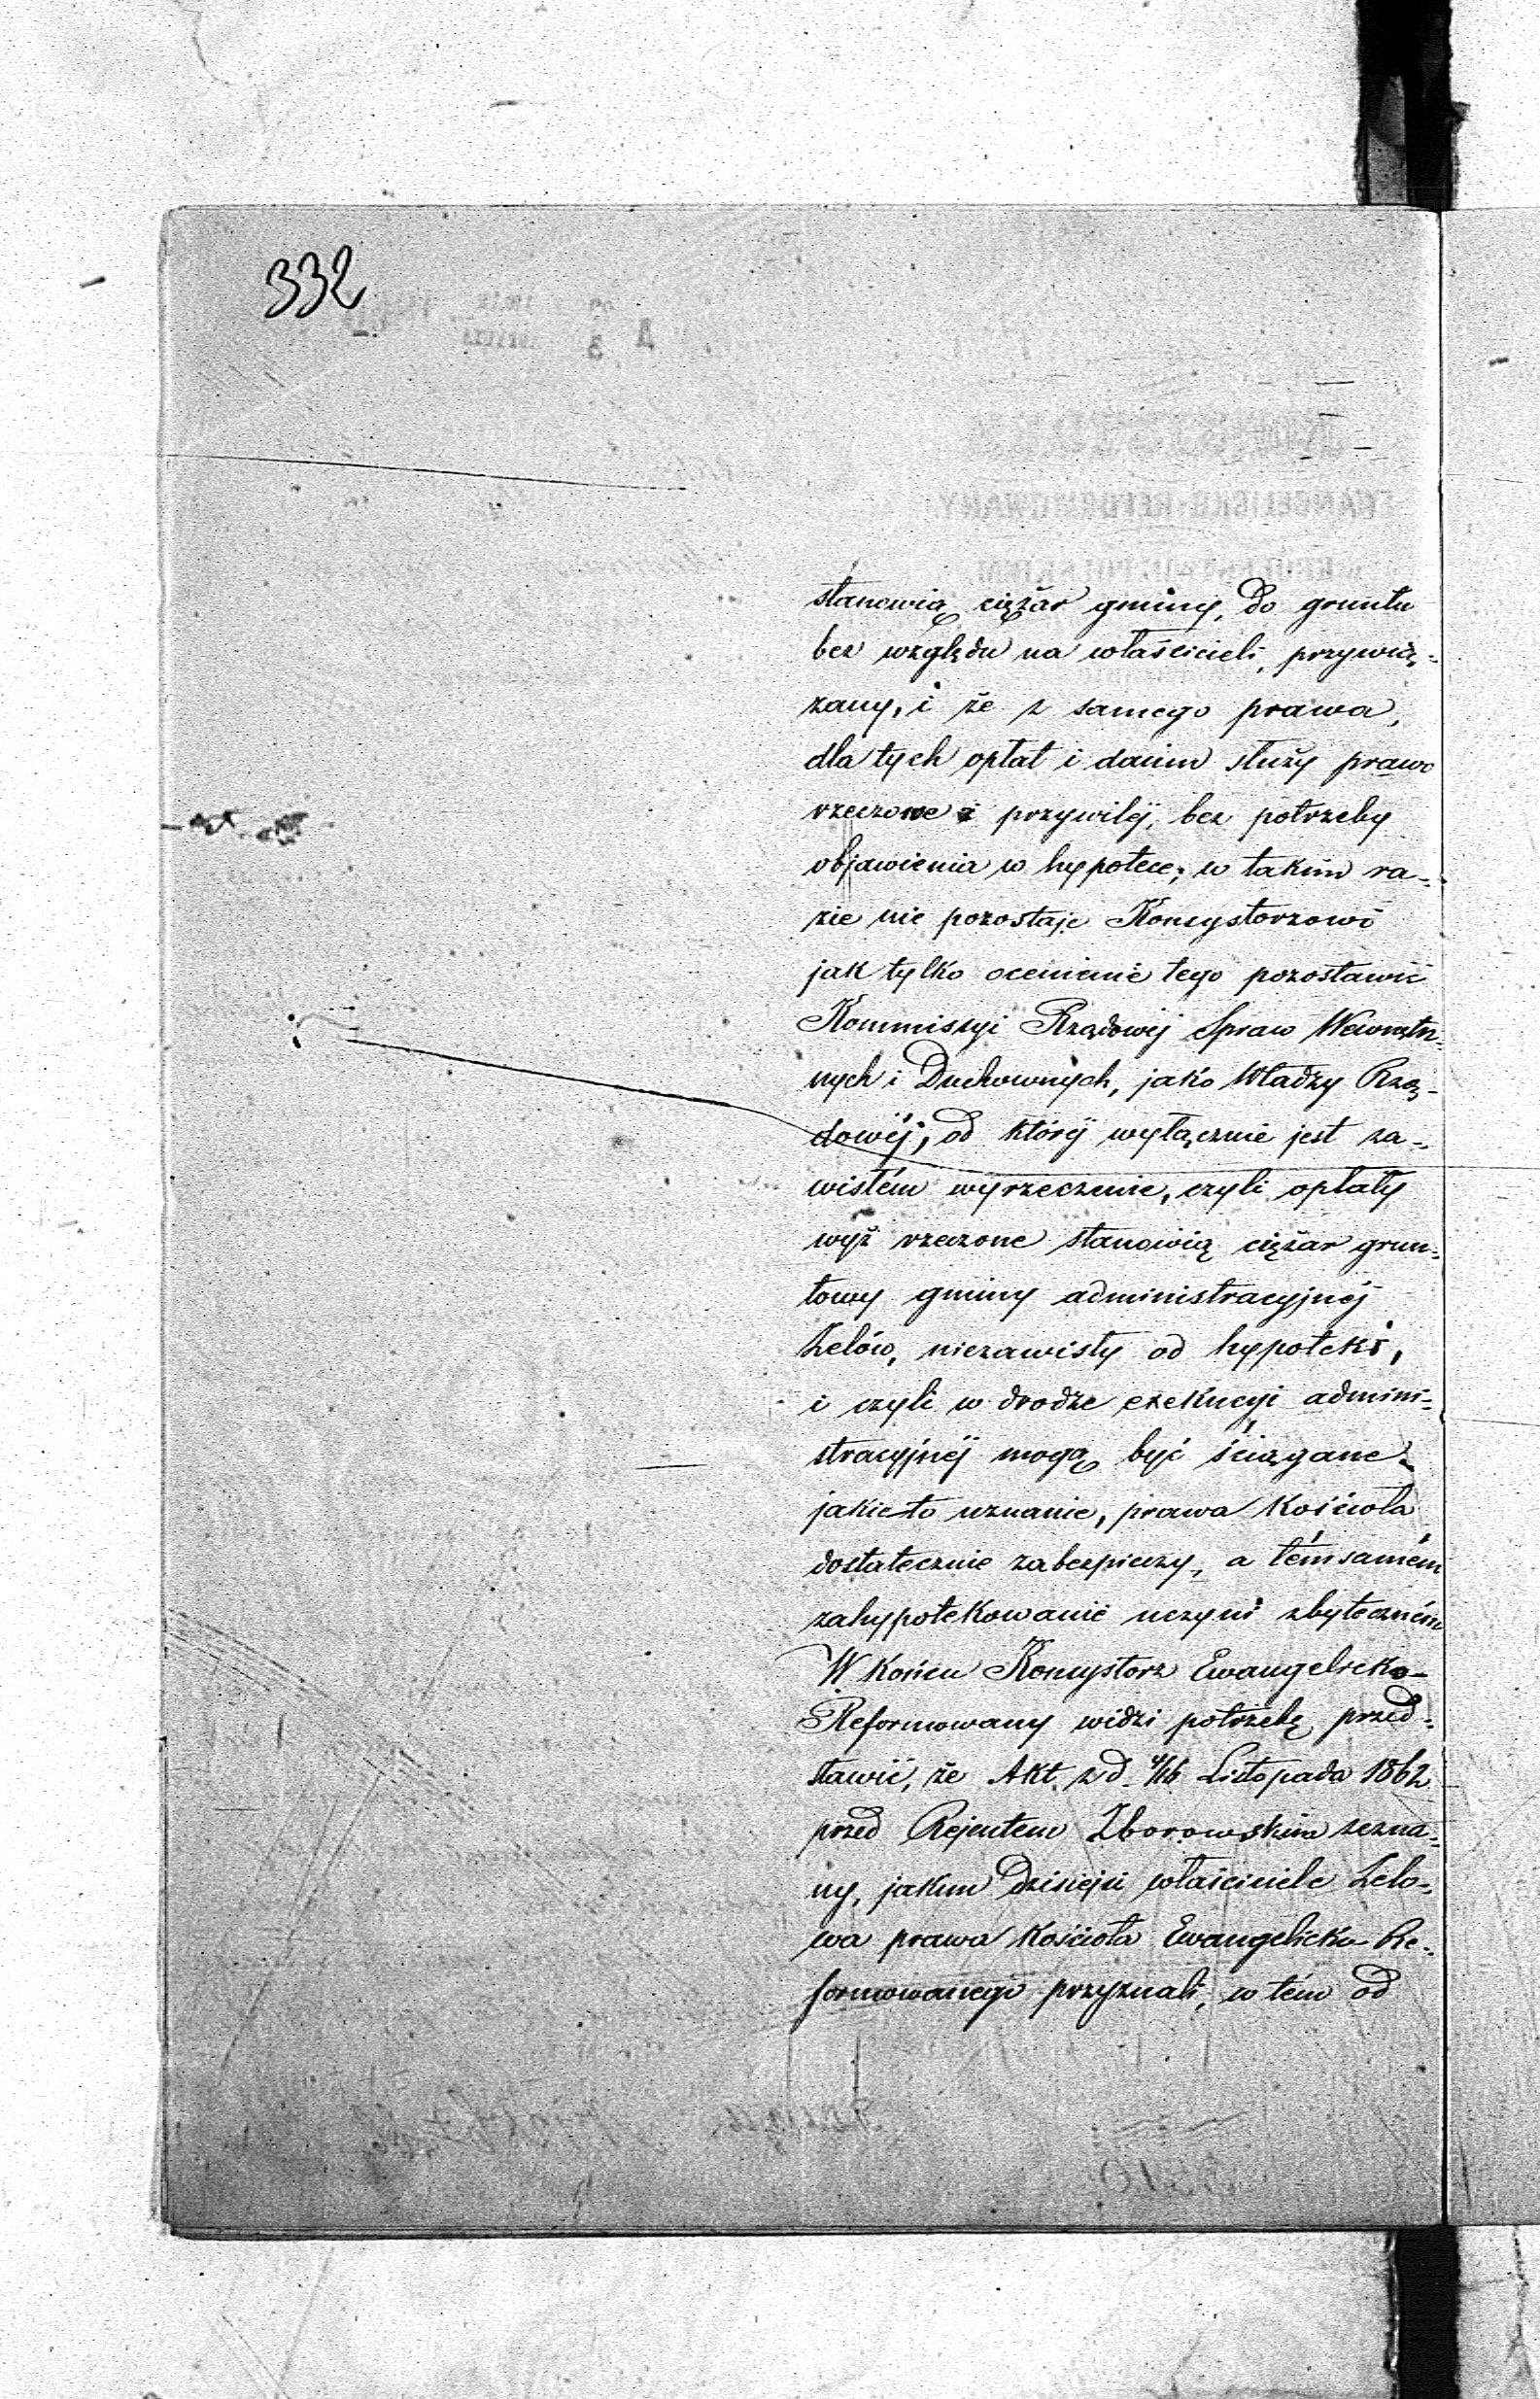 332
stanowią ciężar gminy, do gruntu
bez względu na właścicieli, przywią-
zany, i że z samego prawa,
dla tych opłat i danin służy prawo
rzeczowe i przywiléj, bez potrzeby
objawienia w hypotece; w takim ra-
zie nie pozostaje Konsystorzowi
jak tylko ocenienie tego pozostawić
Kommissyi Rządowéj Spraw Wewnętrz-
nych i Duchownych, jako Władzy Rzą-
dowéj, od któréj wyłącznie jest za-
wisłém wyrzeczenie, czyli opłaty
wyż rzeczone stanowią ciężar grun-
towy gminy administracyjnéj
Zelów, niezawisły od hypoteki,
i czyli w drodze exekucyi admini-
stracyjnéj mogą być ściągane.
jakie to uznanie, prawa Kościoła
dostatecznie zabezpieczy, a témsamém
zahypotekowanie uczyni zbyteczném
W końcu Konsystorz Ewangelicko-
Reformowany widzi potrzebę przed-
stawić, że Akt z d. 4/16 Listopada 1862
przed Rejentem Zborowskim zezna-
ny, jakim dzisiejsi właściciele Zelo-
wa prawa Kościoła Ewangelicko Re-
formowanego przyznali, w tém od